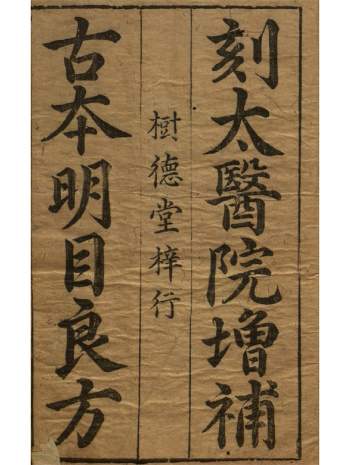 刻太醫院增補
樹德堂梓行
古本明目良方